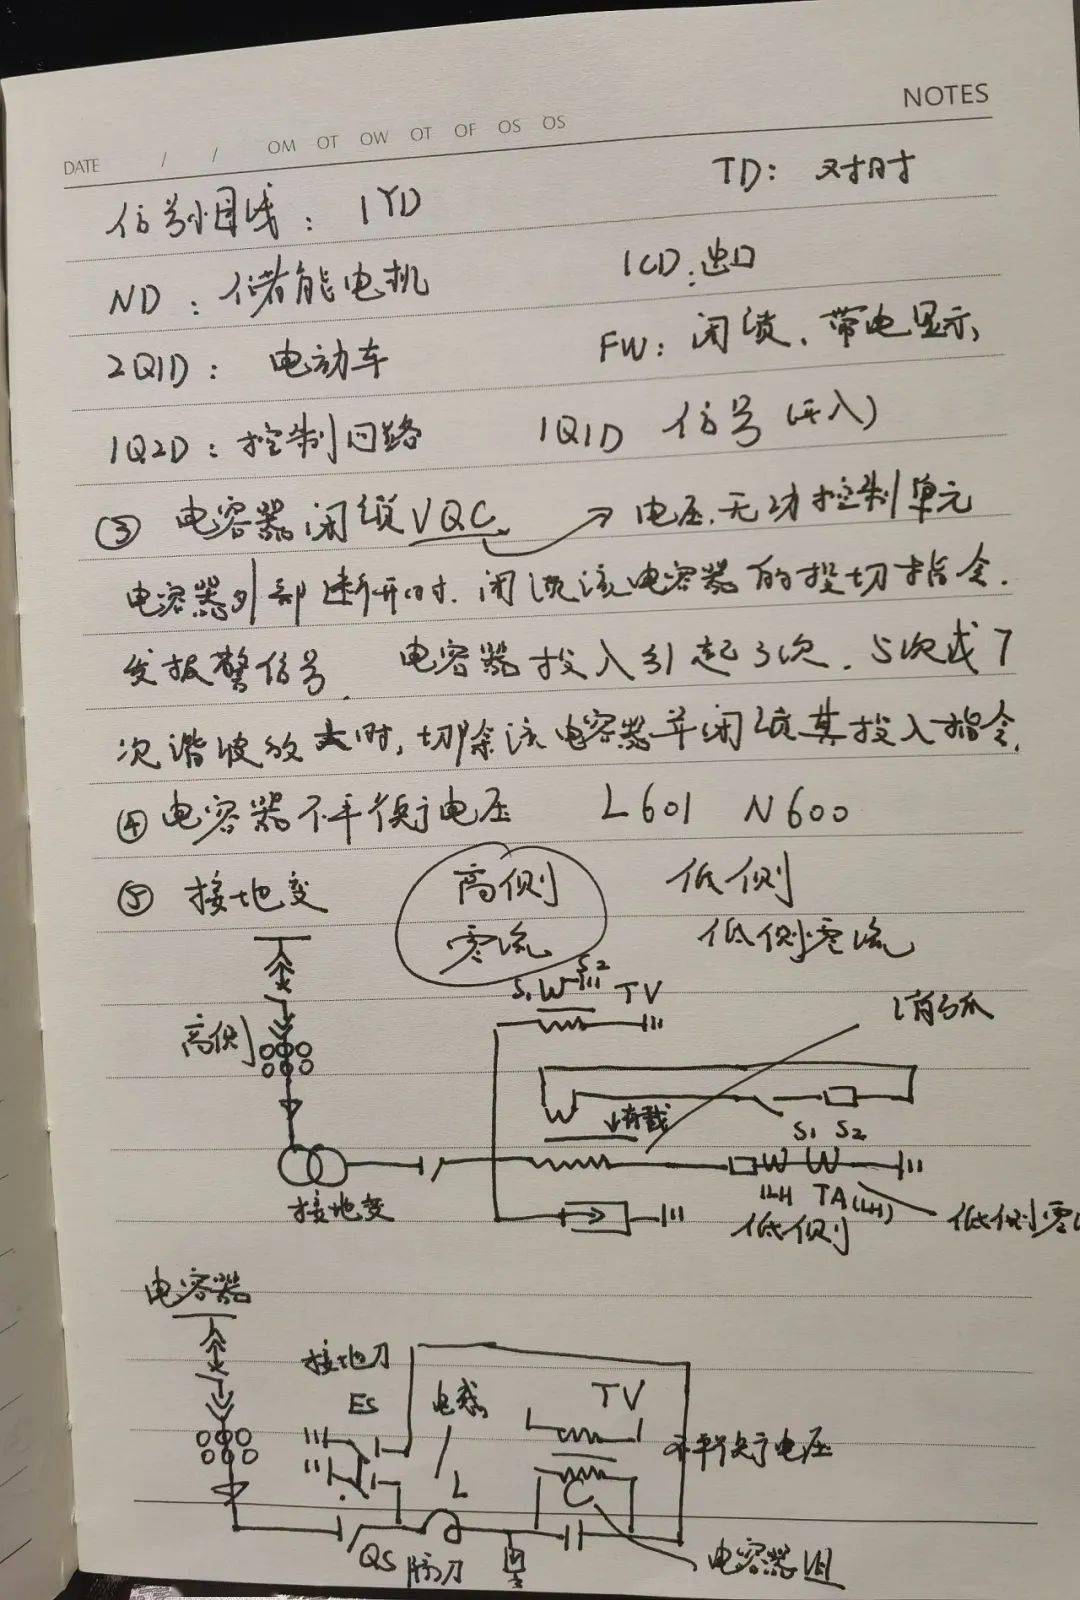 NOTES
DATE / / OM OT OW OT OF OS OS
信号小母线：1YD TD：对时
ND：储能电机 1CD：出口
2Q1D：电动车 FW：闭锁、带电显示
1Q2D：控制回路 1Q1D 信号（开入）
③ 电容器闭锁VQC → 电压、无功控制单元
电容器外部断开时，闭锁该电容器的投切指令.
发报警信号. 电容器投入引起3次、5次或7
次谐波放大时，切除该电容器并闭锁其投入指令.
④ 电容器不平衡电压 L601 N600
⑤ 接地变 高侧 低侧
零流 低侧零流
S1 S2 TV
消弧
高侧
有载
S1 S2
接地变
LH TA(LH)
低侧 低侧零
电容器
接地刀
ES 电感 TV
不平衡电压
L C
QS 隔刀 电容器组